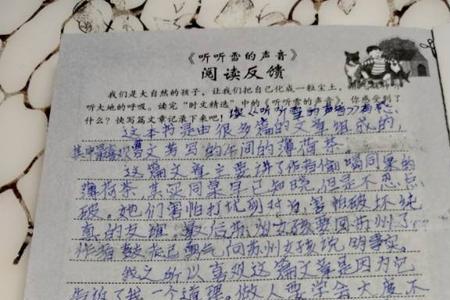 《听听雪的声音》
阅读反馈
我们是大自然的孩子,让我们把自己化成一粒尘土,
听大地的呼唤。读完“时文精选”中的《听听雪的声音》,你感受到了
什么?快写篇文章记录下来吧!
读《听听雪的声音》
这本书是由很多篇的文章组成的,
其中最喜欢 文 写的 间的薄荷茶
这篇文章主要讲了作者偷喝同桌的
薄荷茶,其实同桌早已知晓,但是不忍点
破。她们害怕打扰到对方,害怕破坏纯
真的友谊。最后苏州女孩要回苏州了,
作者鼓起勇气,向苏州女孩说明事实。
我之所以喜欢这篇文章是因为它
告诉了我一个道理。做人要学会大度,不